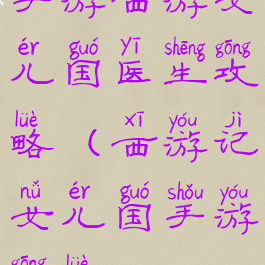 手游西游女
ér guó yī shēng gōng
儿国医生攻
lüè xī yóu jì
略（西游记
nǚ ér guó shǒu yóu
女儿国手游
gōng lüè